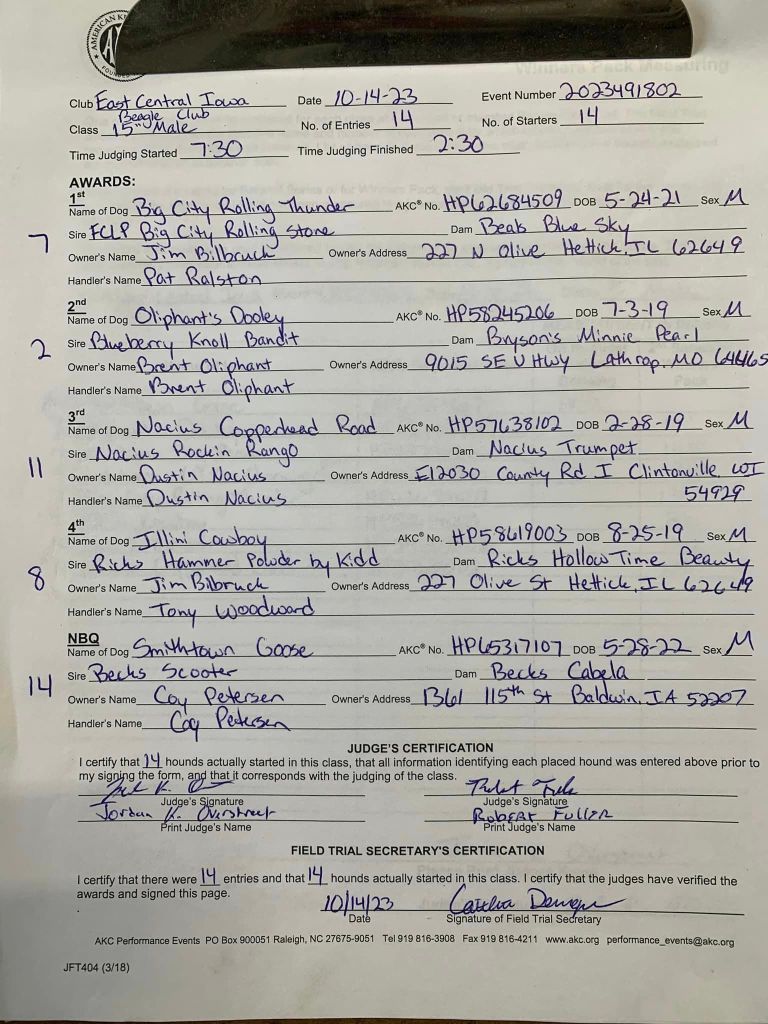 AMERICAN K
Winners Pack Measuring
Club East Central Iowa Beagle Club Date 10-14-23 Event Number 2023491802
Class 15" Male No. of Entries 14 No. of Starters 14
Time Judging Started 7:30 Time Judging Finished 2:30
AWARDS:
1st
Name of Dog Big City Rolling Thunder AKC® No. HP62684509 DOB 5-24-21 Sex M
7 Sire FCLP Big City Rolling Stone Dam Beals Blue Sky
Owner's Name Jim Bilbruck Owner's Address 227 N Olive Hettick, IL 62649
Handler's Name Pat Ralston
2nd
Name of Dog Oliphant's Dooley AKC® No. HP58245206 DOB 7-3-19 Sex M
2 Sire Blueberry Knoll Bandit Dam Bryson's Minnie Pearl
Owner's Name Brent Oliphant Owner's Address 9015 SE V HWY Lathrop, MO 64465
Handler's Name Brent Oliphant
3rd
Name of Dog Nacius Copperhead Road AKC® No. HP57638102 DOB 2-28-19 Sex M
11 Sire Nacius Rockin Rango Dam Nacius Trumpet
Owner's Name Dustin Nacius Owner's Address E12030 County Rd I Clintonville WI
Handler's Name Dustin Nacius 54929
4th
Name of Dog Illini Cowboy AKC® No. HP58619003 DOB 8-25-19 Sex M
8 Sire Ricks Hammer Powder by Kidd Dam Ricks Hollow Time Beauty
Owner's Name Jim Bilbruck Owner's Address 227 Olive St Hettick, IL 62649
Handler's Name Tony Woodward
NBQ
Name of Dog Smithtown Goose AKC® No. HP65317107 DOB 5-28-22 Sex M
14 Sire Becks Scooter Dam Becks Cabela
Owner's Name Coy Petersen Owner's Address 1361 115th St Baldwin, IA 52207
Handler's Name Coy Petersen
JUDGE'S CERTIFICATION
I certify that 14 hounds actually started in this class, that all information identifying each placed hound was entered above prior to
my signing the form, and that it corresponds with the judging of the class.
Judge's Signature Judge's Signature
Jordan K. Overstreet Robert Fuller
Print Judge's Name Print Judge's Name
FIELD TRIAL SECRETARY'S CERTIFICATION
I certify that there were 14 entries and that 14 hounds actually started in this class. I certify that the judges have verified the
awards and signed this page.
10/14/23
Date Signature of Field Trial Secretary
AKC Performance Events PO Box 900051 Raleigh, NC 27675-9051 Tel 919 816-3908 Fax 919 816-4211 www.akc.org performance_events@akc.org
JFT404 (3/18)